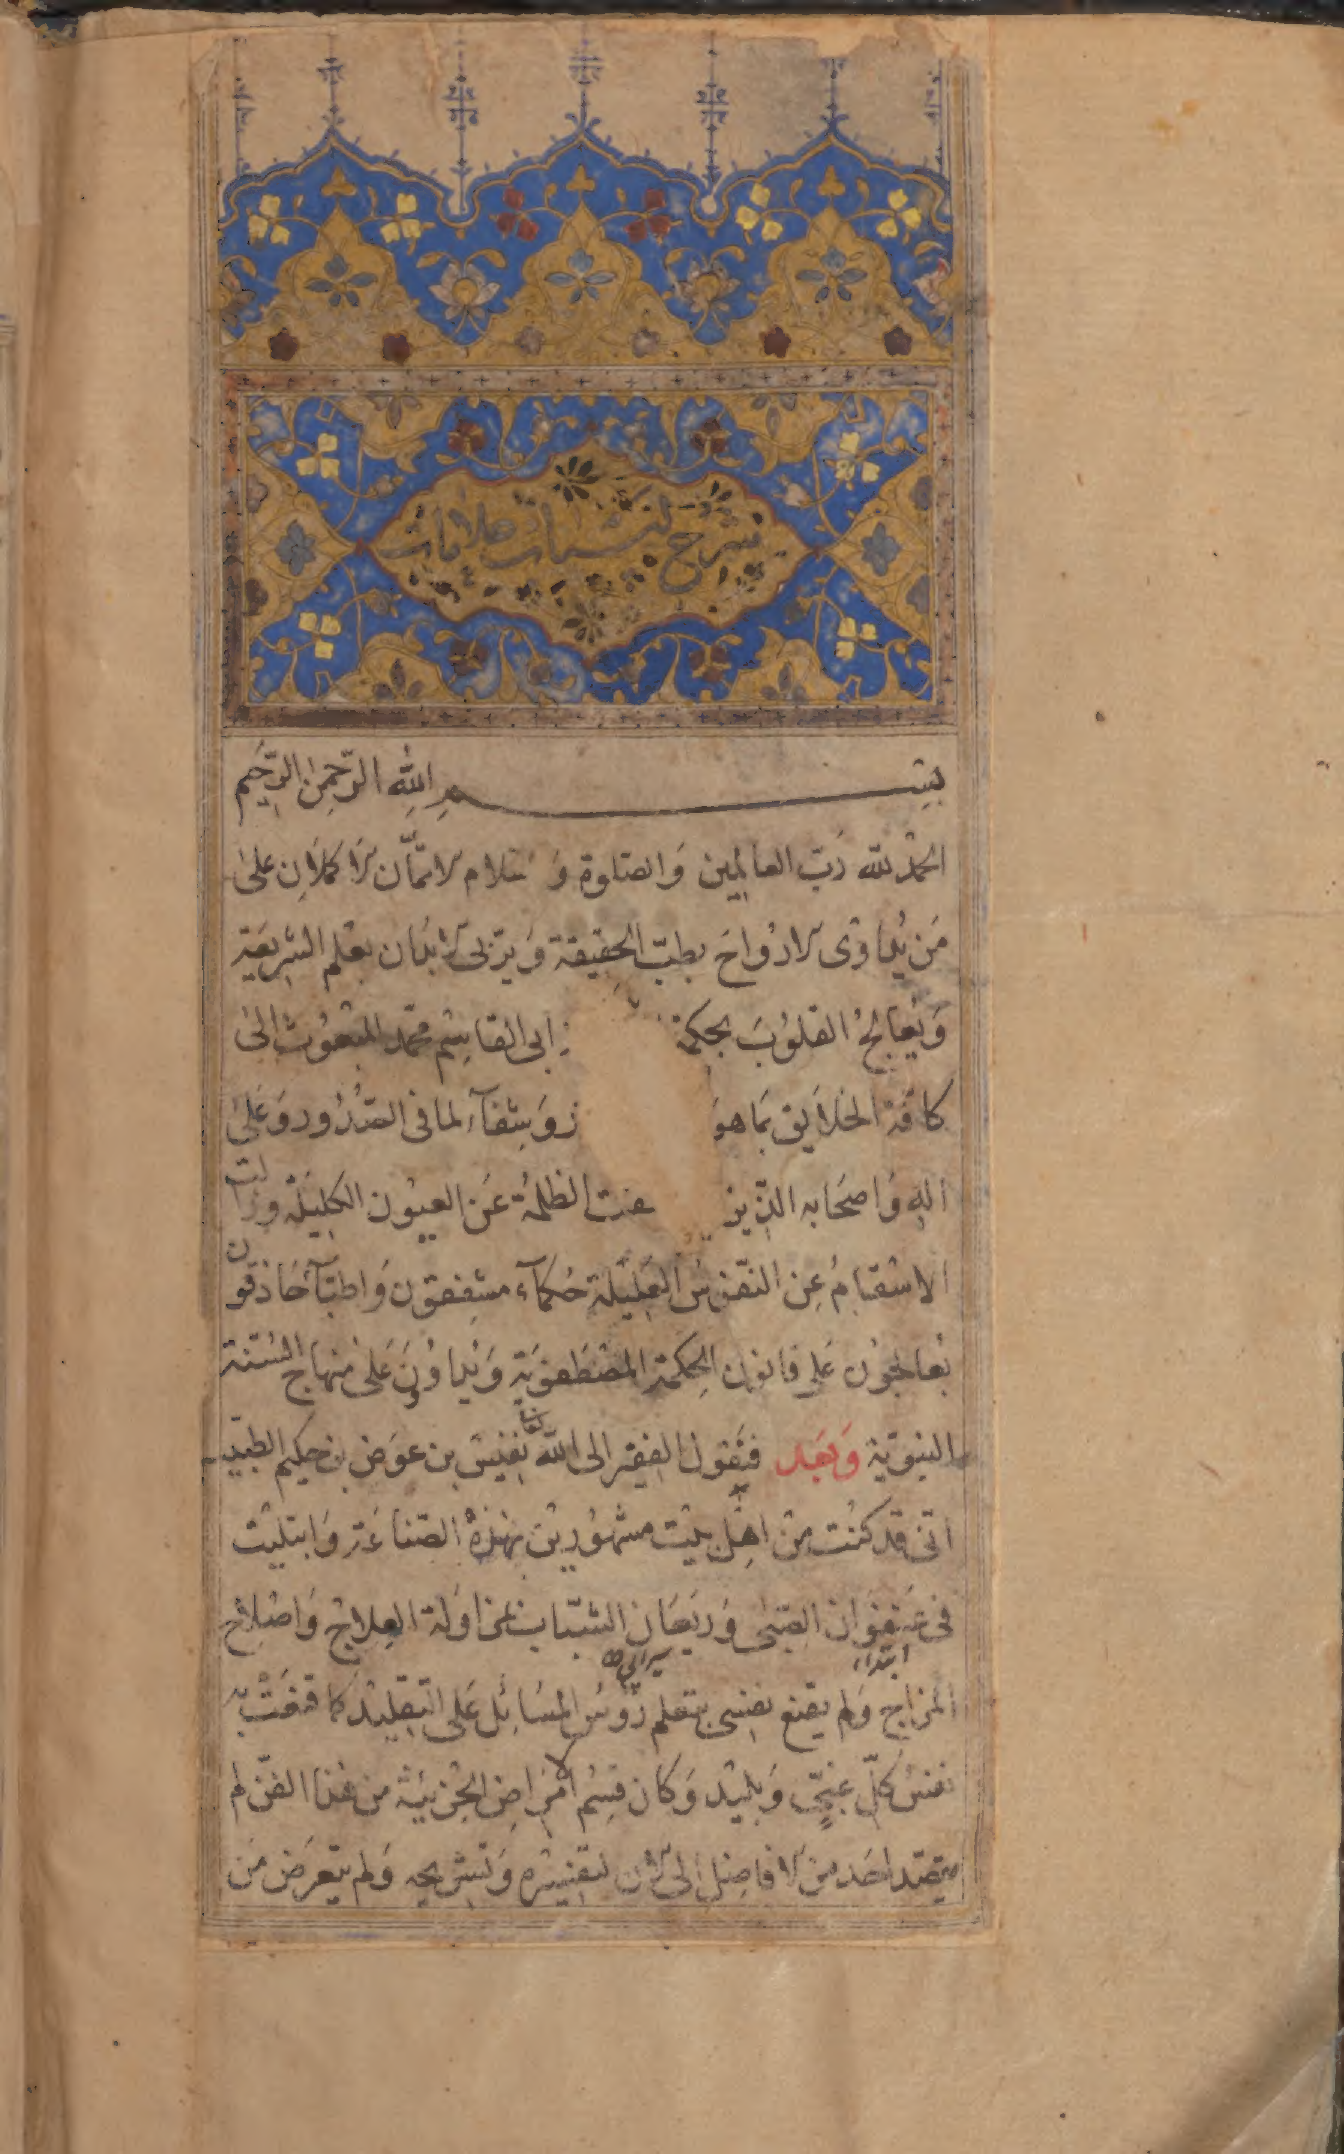 شرح علامات
بسم الله الرحمن الرحيم
الحمد لله رب العالمين والصلوة والسلام الاتمان الاكملان على
من يداوى الارواح بطب الحقيقة ويربى الابدان بعلم الشريعة
ويعالج القلوب بحكمة ابى القاسم محمد المبعوث الى
كافة الخلايق بما هو وشفآء لما فى الصدور وعلى
اله واصحابه الذين الظلمة عن العيون الكليلة وزالت
الاسقام عن النفوس العليلة حكمآء مشفقون واطبآء حاذقون
يعالجون على قانون الحكمة المصطفوية ويداوون على منهاج السنة
النبوية وبعد فيقول الفقير الى الله تعالى نفيس بن عوض بن حكيم الطبيب
انى قد كنت من اهل بيت مشهورين بهذه الصناعة وابتليت
فى عنفوان الصبى وريعان الشباب بمزاولة العلاج واصلاح
المزاج ولم يقنع نفسى بتعلم رؤس المسائل على التقليد كما قنعت به
نفس كل غبى وبليد وكان قسم الامراض الجزئية من هذا الفن لم
يتصد احد من الافاضل الى الان لتفسيره وتشريحه ولم يتعرض من